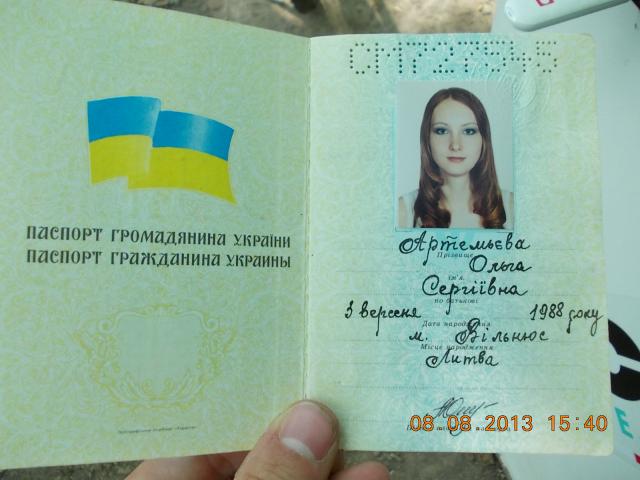 ПАСПОРТ ГРОМАДЯНИНА УКРАЇНИ
ПАСПОРТ ГРАЖДАНИНА УКРАИНЫ
СМ727545
Артемьєва
Прізвище
Ольга
ім'я
Сергіївна
по батькові
3 вересня 1988 року
Дата народження
м. Вільнюс
Місце народження
Литва
08.08.2013 15:40